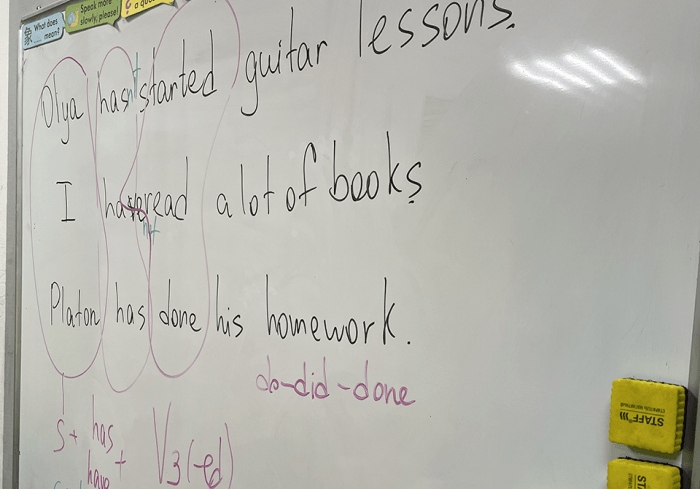 What does ... mean?
Speak more slowly, please!
a que
Olya hasn't started guitar lessons.
I have read a lot of books.
not
Platon has done his homework.
do-did-done
S + has + V3 (-ed)
have
STAFF